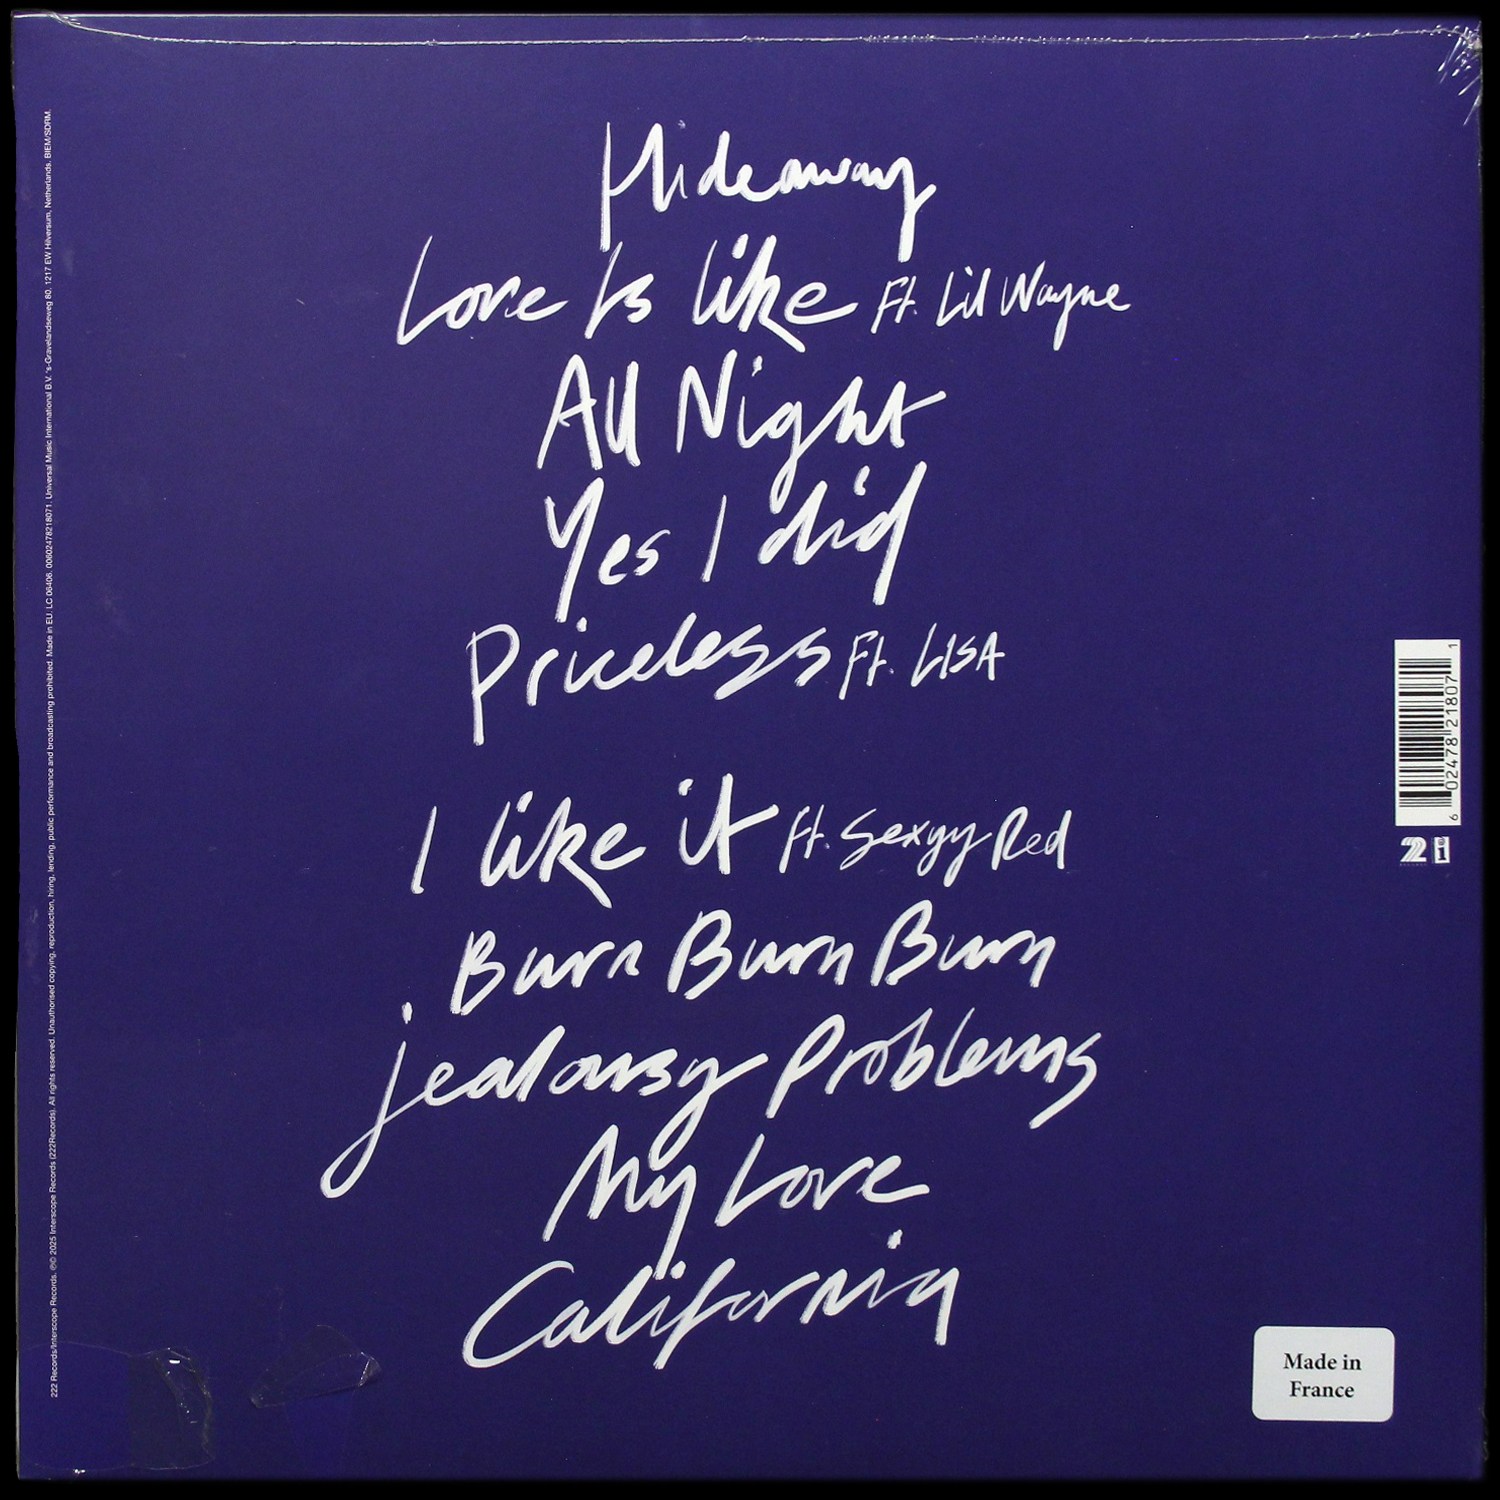 Hideaway
Love Is like Ft. Lil Wayne
All Night
Yes I did
Priceless Ft. LISA
I like it Ft. Sexyy Red
Burn Burn Burn
jealousy Problems
My Love
California
222 Records/Interscope Records. ℗© 2025 Interscope Records (222Records). All rights reserved. Unauthorised copying, reproduction, hiring, lending, public performance and broadcasting prohibited. Made in EU. LC 06406. 00602478218071. Universal Music International B.V. 's-Gravelandseweg 80, 1217 EW Hilversum, Netherlands. BIEM/SDRM.
6 02478 21807 1
222 i
Made in
France